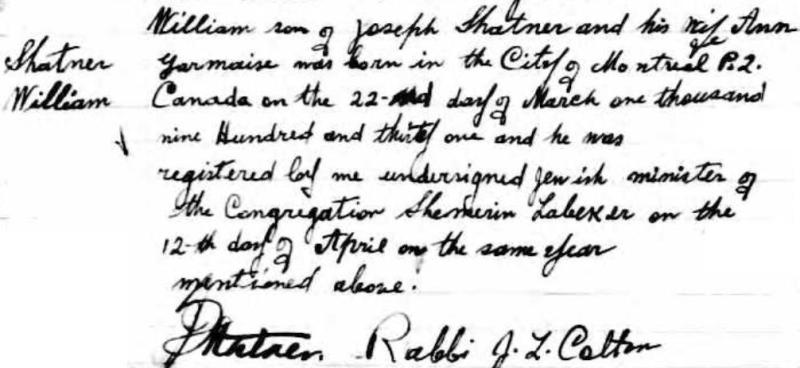 William son of Joseph Shatner and his wife Ann
Shatner Garmaise was born in the City of Montreal P.Q.
William Canada on the 22-nd day of March one thousand
nine Hundred and thirty one and he was
registered by me undersigned Jewish minister of
the Congregation Shemerin Labeker on the
12-th day of April on the same year
mentioned above.
J Shatner. Rabbi J. L. Colton